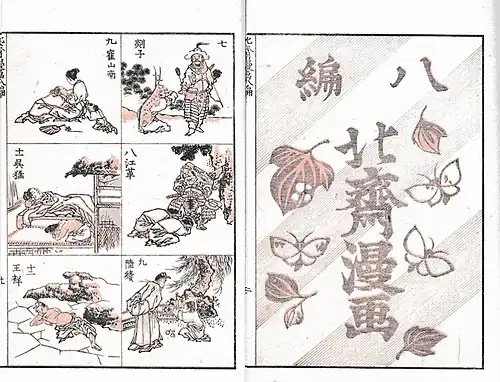 八編
北齋漫画
七
剡子
八江革
九
陸績
九崔山南
十一吳猛
十二
王祥